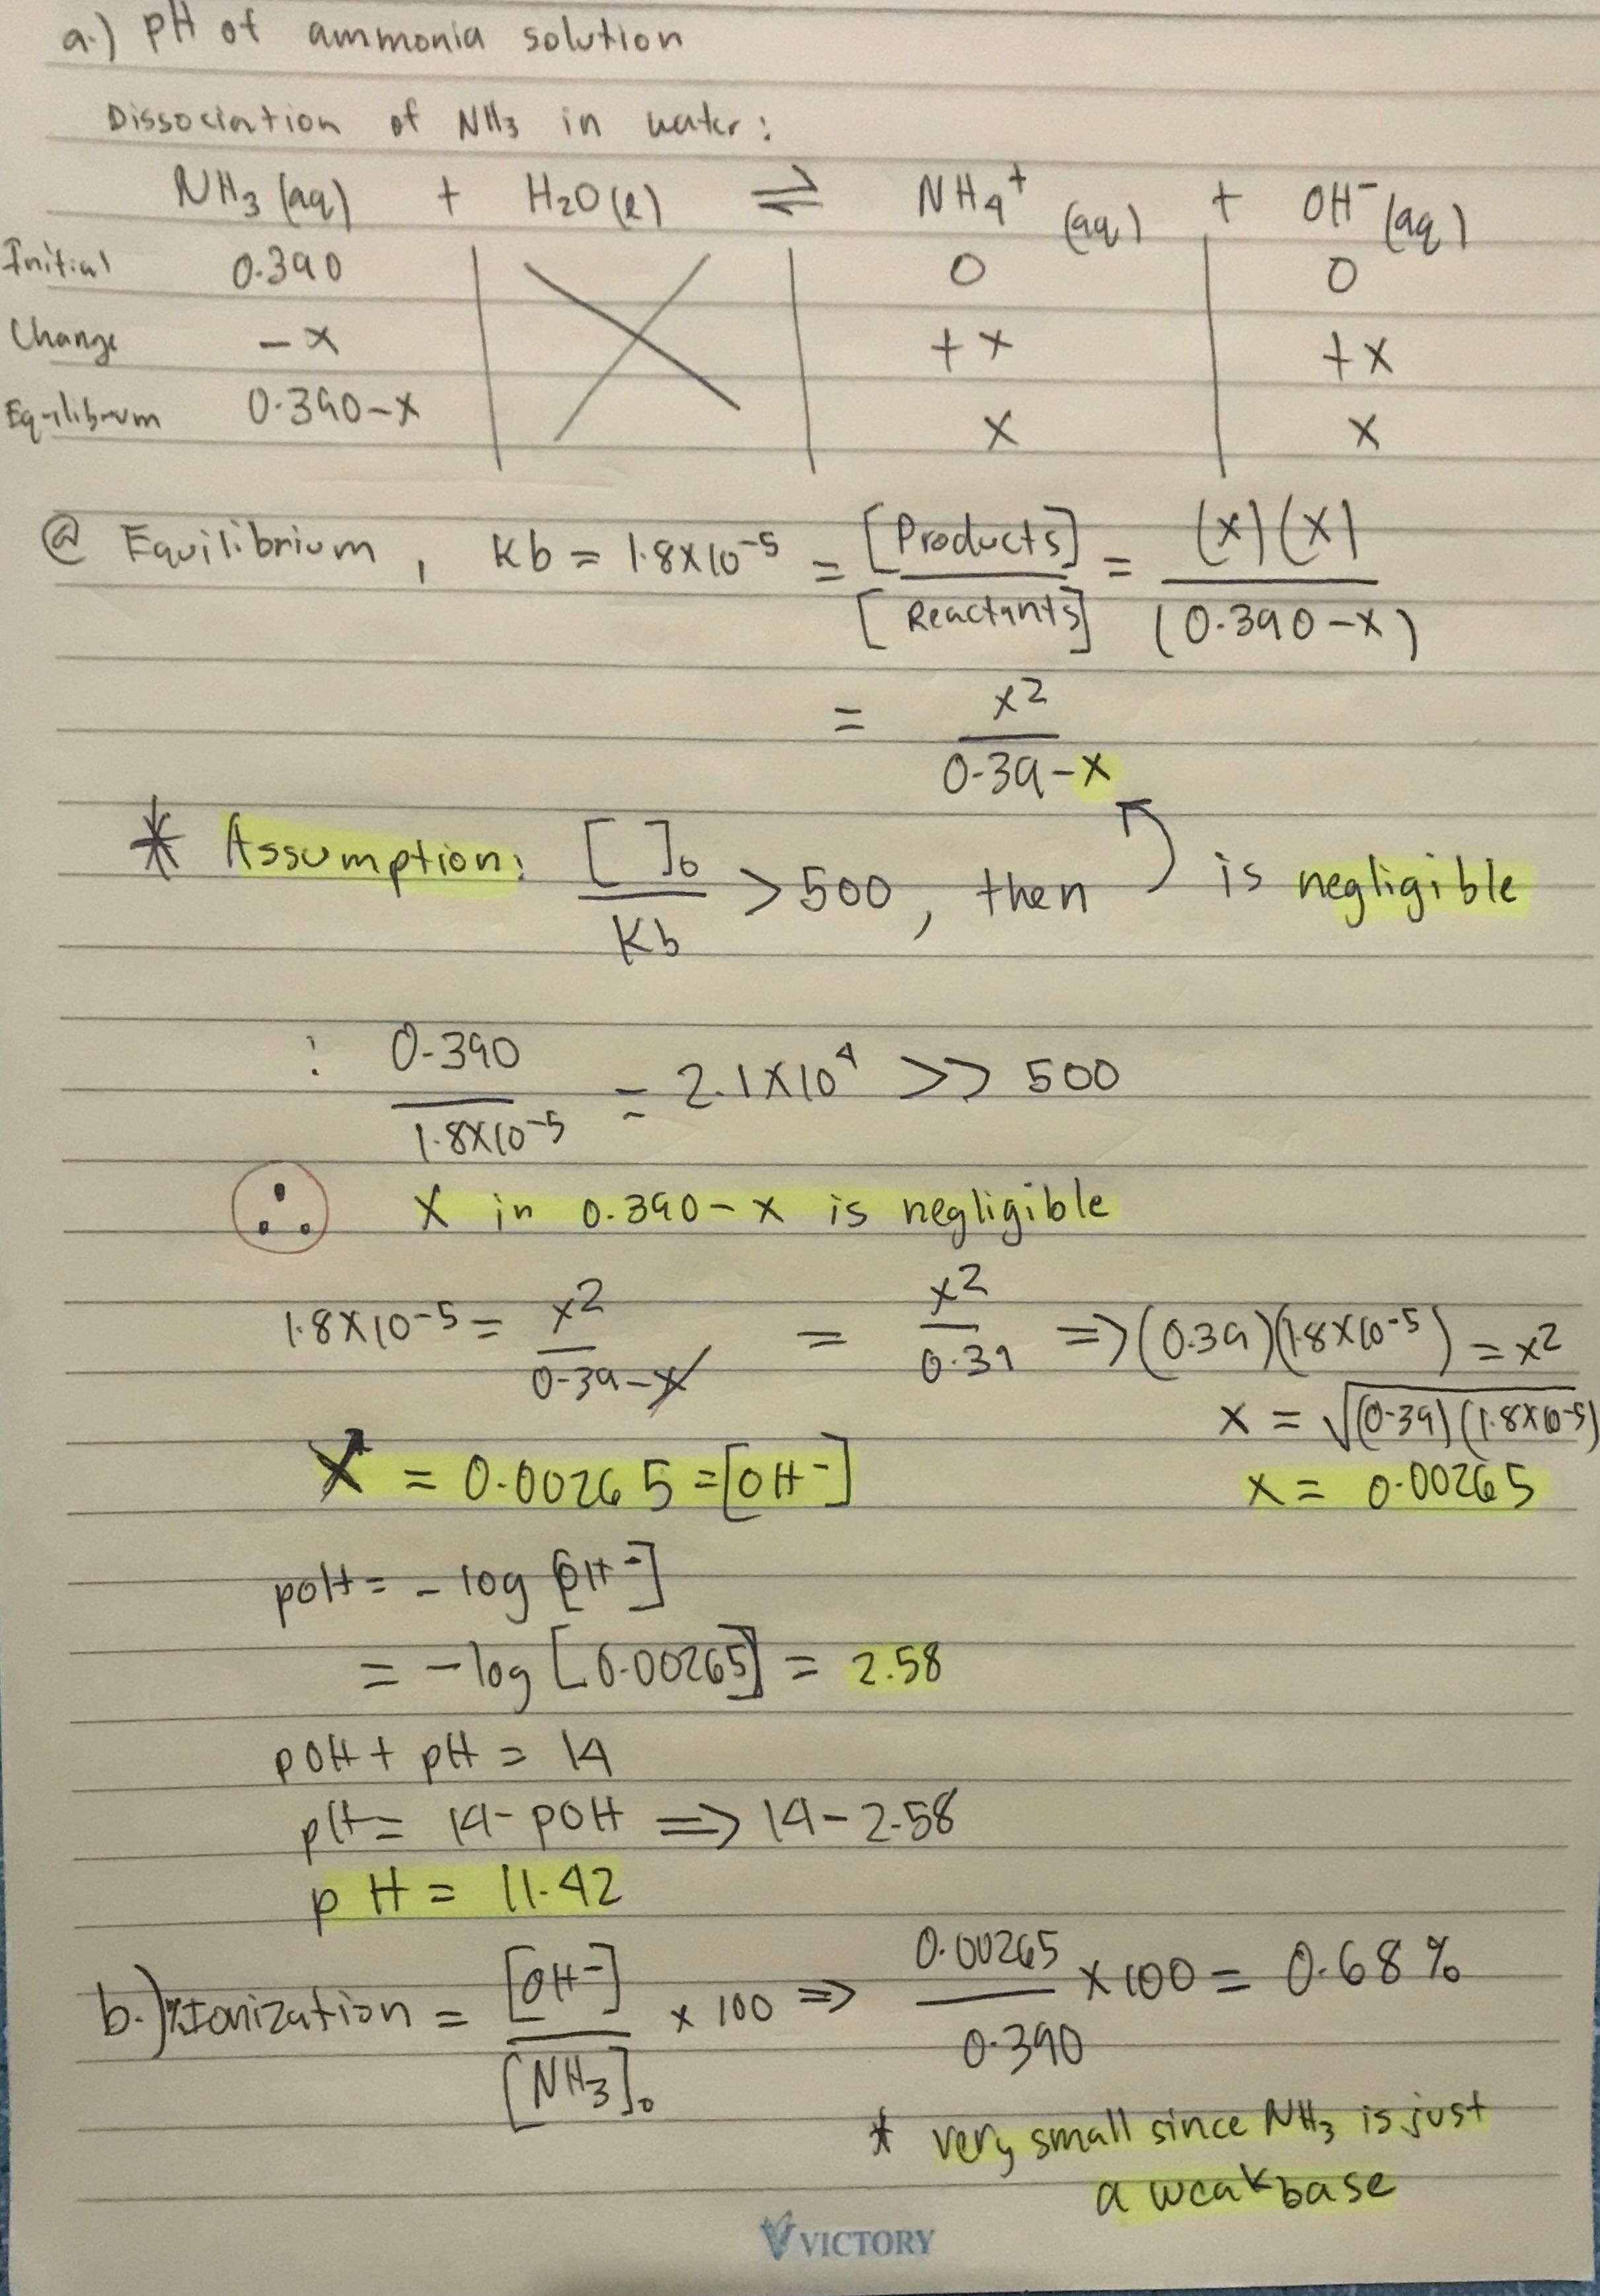 a.) pH of ammonia solution
Dissociation of NH3 in water:
NH3 (aq) + H2O (l) ⇌ NH4+ (aq) + OH- (aq)
Initial 0.390 0 0
Change -x +x +x
Equilibrium 0.390-x x x
@ Equilibrium, Kb = 1.8x10^-5 = [Products]/[Reactants] = (x)(x)/(0.390-x)
= x^2/0.39-x
* Assumption: [ ]o/Kb > 500, then is negligible
: 0.390/1.8x10^-5 = 2.1x10^4 >> 500
∴ x in 0.390-x is negligible
1.8x10^-5 = x^2/0.39-x = x^2/0.39 => (0.39)(1.8x10^-5) = x^2
x = √(0.39)(1.8x10^-5)
x = 0.00265 = [OH-] x = 0.00265
pOH = -log [OH-]
= -log [0.00265] = 2.58
pOH + pH = 14
pH = 14-pOH => 14-2.58
pH = 11.42
b.) %Ionization = [OH-]/[NH3]o x 100 => 0.00265/0.390 x 100 = 0.68%
* very small since NH3 is just
a weak base
VICTORY